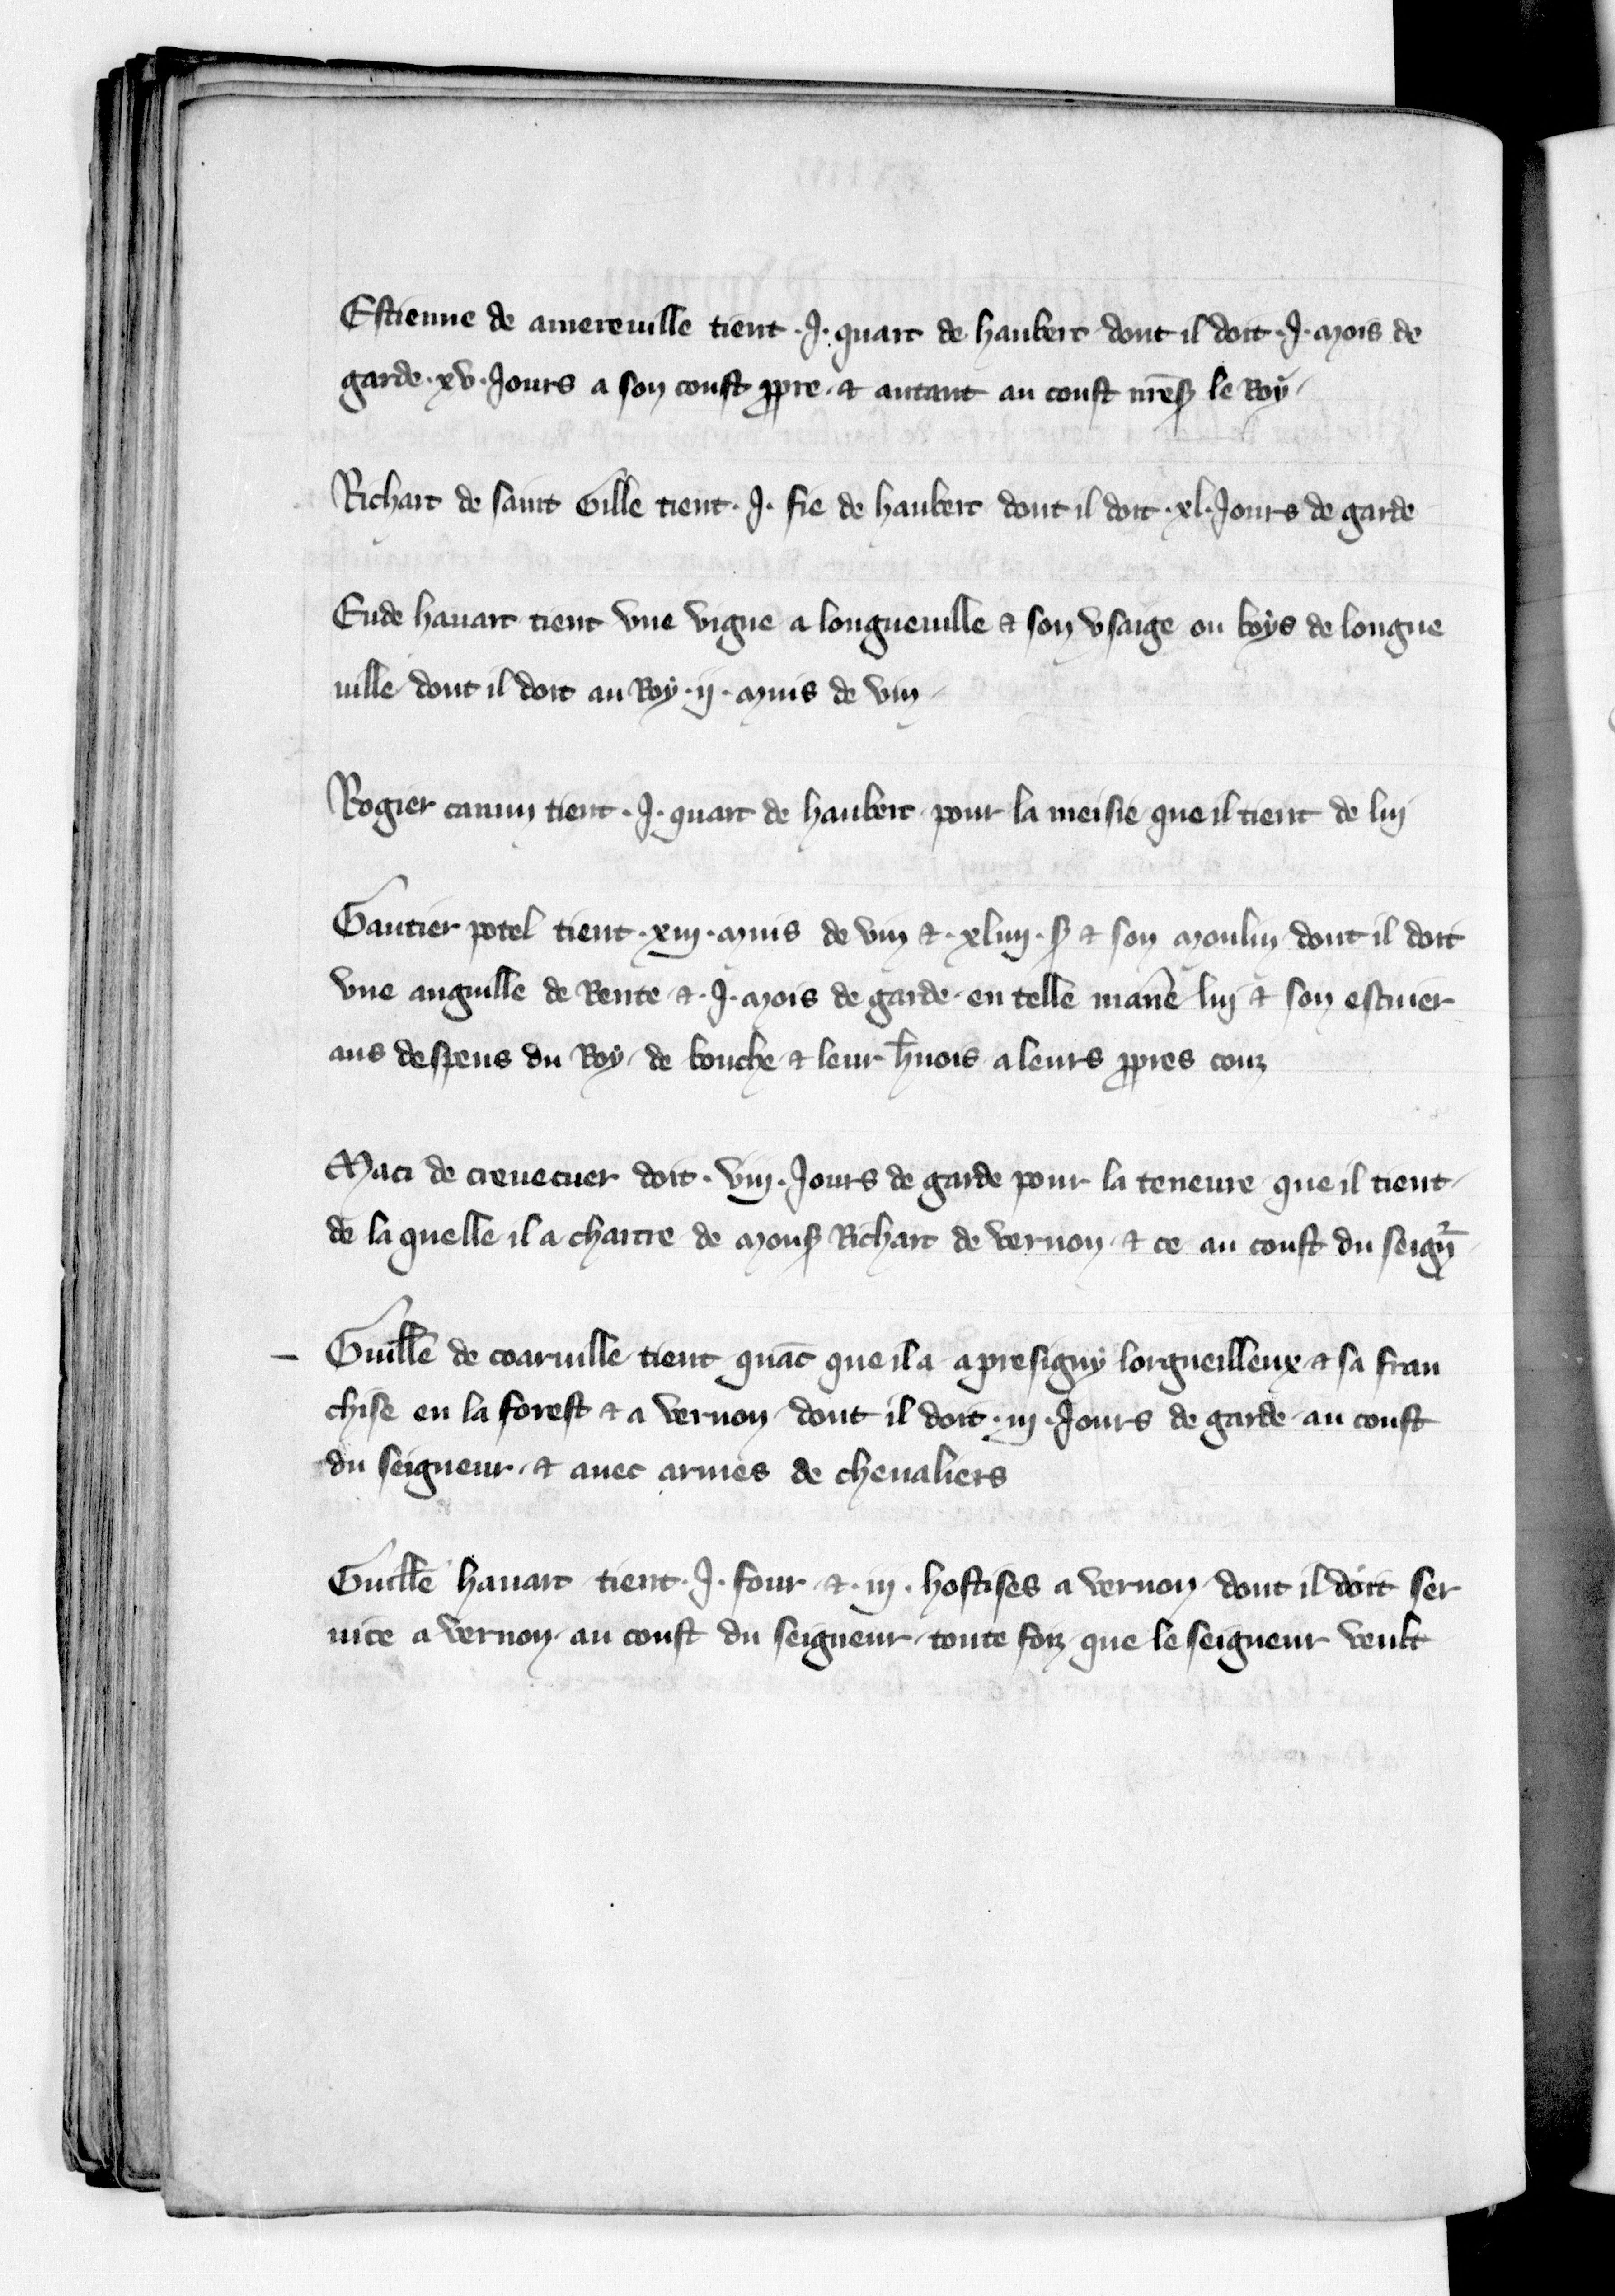 Estienne de amereuille tient .I. quart de haubert dont il doit .I. mois de
garde .xv. Jours a son coust ppre et autant au coust nrēs le Roy
Richart de saint Gille tient .I. fie de haubert dont il doit .xl. Jours de garde
Eude hauart tient vne vigne a longueuille & son vsaige ou boys de longue
uille dont il doit au Roy .ij. muis de vin
Rogier canun tient .I. quart de haubert pour la meisie que il tient de luy
Gautier potel tient .xiij. muis de vin & .xliiij. s & son moulin dont il doit
vne anguille de Rente & .I. mois de garde en telle manē luy & son escuier
aus despens du Roy de bouche & leur h̄nois a leurs ppres couz
Maci de creuecuer doit .viij. Jours de garde pour la teneure que il tient
de la quelle il a chartre de mons Richart de vernon & ce au coust du seign̄r
Guillē de coaruille tient quāt que il a a presigny lorgueilleux & sa fran
chise en la forest & a vernon dont il doit .iij. Jours de garde au coust
du seigneur & auec armes de cheualiers
Guillē hauart tient .I. four & .iij. hostises a vernon dont il doit ser
uice a vernon au coust du seigneur toute foiz que le seigneur veult